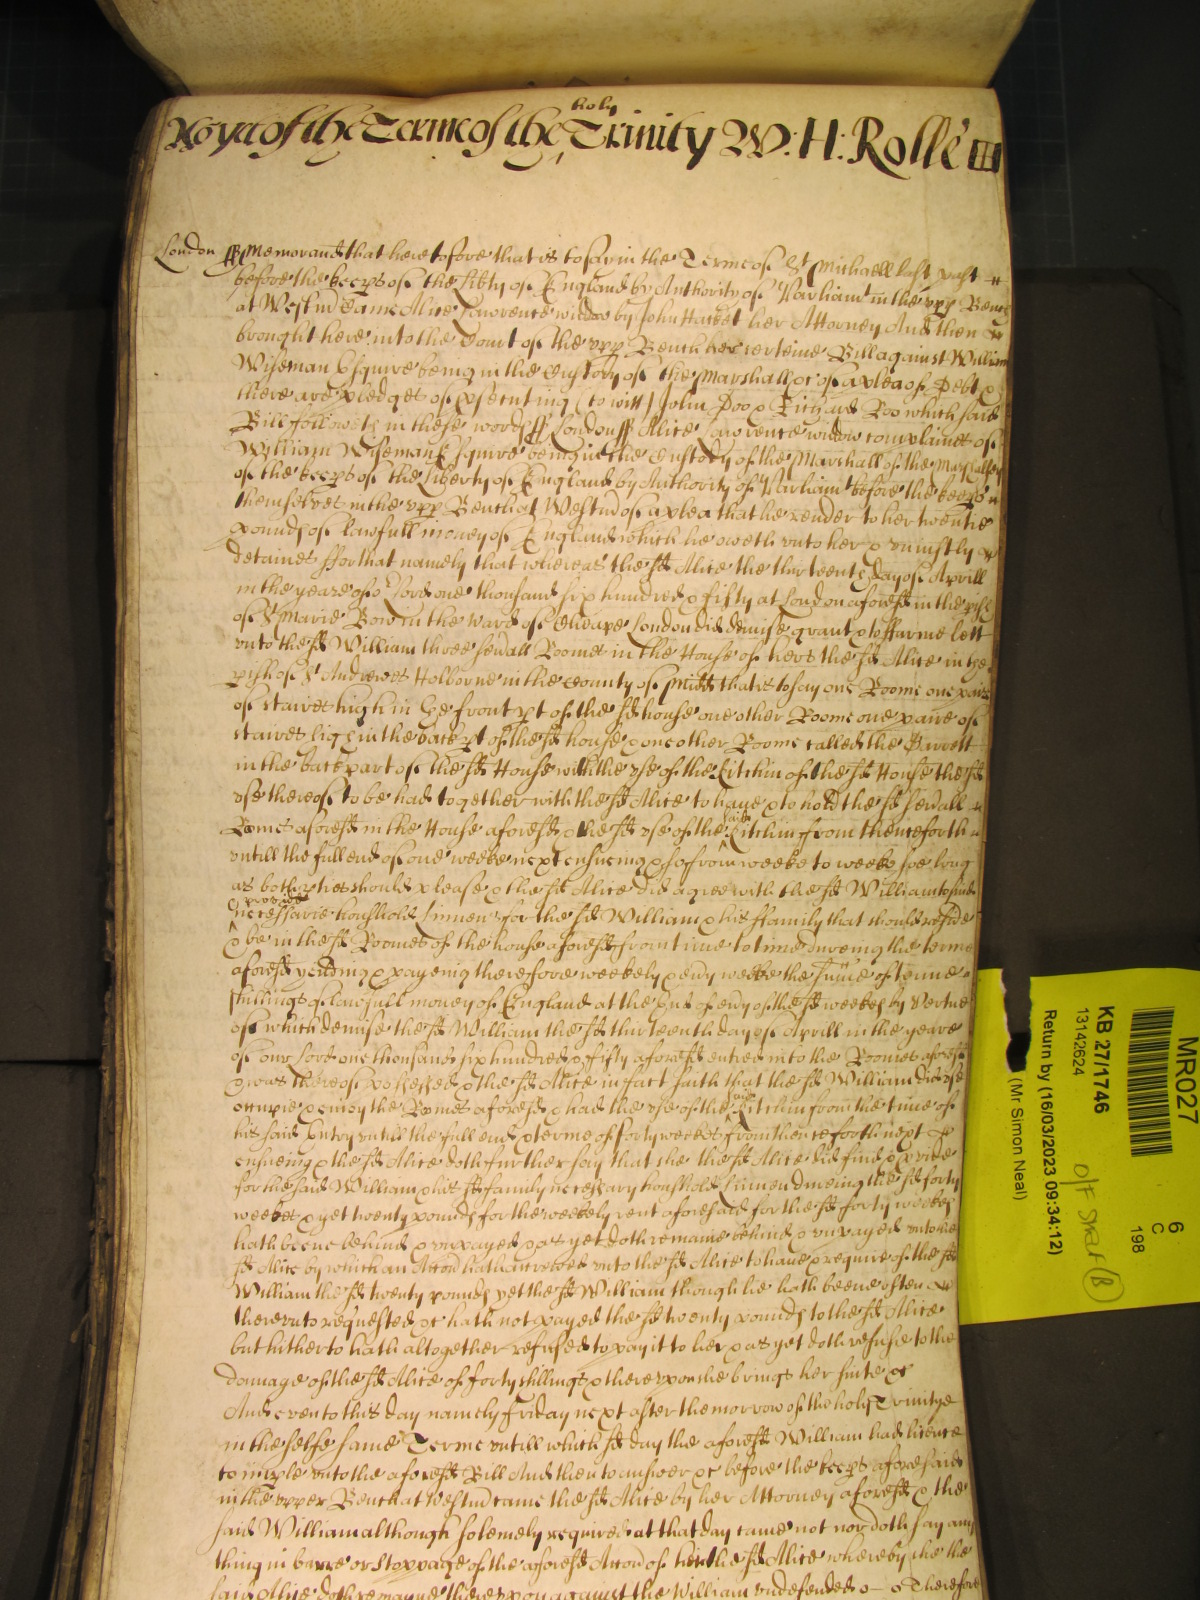 Yet of the Terme of the holy Trinity W: H: Rolle
London ss Memorand that heretofore that is to say in the Terme of St Michaell last past
before the keeps of the libty of England by Authority of Parliamt in the upp Bench
at Westm came Alice Lawrence widdow by John Hacket her Attorney And then
brought here into the Court of the upp Bench her certeine Bill against William
Wiseman Esquire being in the custody of the Marshall &c of a plea of Debt &
there are pledges of psecuting (to witt) John Doo & Richard Roo which said
Bill followeth in these words ss London ss Alice Lawrence widow complaines of
William Wiseman Esquire being in the custody of the Marshall of the Marshalsey
of the keeps of the Liberty of England by Authority of Parliamt before the keeps
themselves in the upp Bench at Westm of a plea that he render to her twentie
pounds of lawfull money of England which he oweth unto her & unjustly
detaines ffor that namely that whereas the sd Alice the thirteenth day of Aprill
in the yeare of or Lord one thousand six hundred & fifty at London aforesd in the pish
of St Marie Bow in the ward of Cheape London did demise grant & to ffarme lett
unto the sd William three sevall Roomes in the House of hers the sd Alice in the
pish of St Andrewes Holborne in the County of Midd that is to say one Roome one paire
of staires high in the front pt of the sd house one other Roome one paire of
staires high in the back pt of the sd house & one other Roome called the Garrett
in the back part of the sd House with the use of the kitchin of the sd House the sd
use thereof to be had together with the sd Alice to have & to hold the sd sevall
Romes aforesd in the House aforesd & the sd use of the said kitchin from thenceforth
untill the full end of one weeke next ensueing & so from weeke to weeke soe long
as both pties should please & the sd Alice did agree with the sd William to find
& provide necessarie houshold linnen for the sd William & his ffamily that should reside
& be in the sd Roomes of the house aforesd from time to time dureing the terme
aforesd yeilding & payeing therefore weekely & evy weeke the sume of tenne
shillings of lawfull money of England at the End of evy of the sd weekes by vertue
of which demise the sd William the sd thirteenth day of Aprill in the yeare
of our Lord one thousand six hundred & fifty aforesd entred into the Roomes aforesd
& was thereof possessed & the sd Alice in fact saith that the sd William did use
occupie & enjoy the Romes aforesd & had the use of the said kitchin from the time of
his said Entry untill the full end & terme of forty weekes from thenceforth next
ensueing & the sd Alice doth further say that she the sd Alice did find & pvide
for the said William & his sd family necessary houshold Linnen dureing the sd forty
weekes & yet twenty pounds for the weekely rent aforesaid for the sd forty weekes
hath beene behind & unpayed & as yet doth remaine behind & unpayed unto the
sd Alice by which an Accon hath accrewed unto the sd Alice to have & require of the sd
William the sd twenty pounds yet the sd William though he hath beene often
thereunto requested &c hath not payed the sd twenty pounds to the sd Alice
but hitherto hath altogether refused to pay it to her & as yet doth refuse to the
damage of the sd Alice of forty shillings & thereupon she brings her suite &c
And even to this day namely friday next after the morrow of the holy Trinitye
in the selfe same Terme untill which sd day the aforesd William had licence
to imple unto the aforesd Bill And then to answer &c before the keeps aforesaid
in the upper Bench at Westm came the sd Alice by her Attorney aforesd & the
said William although solemely required at that day came not nor doth say any
thing in barre or stoppage of the aforesd Accon of the sd Alice whereby she the
said Alice doth remayne thereupon against the William undefended Therefore
MR027
KB 27/1746
13142624
Return by (16/03/2023 09:34:12)
(Mr Simon Neal)
6
C
198
O/F Staff (B)